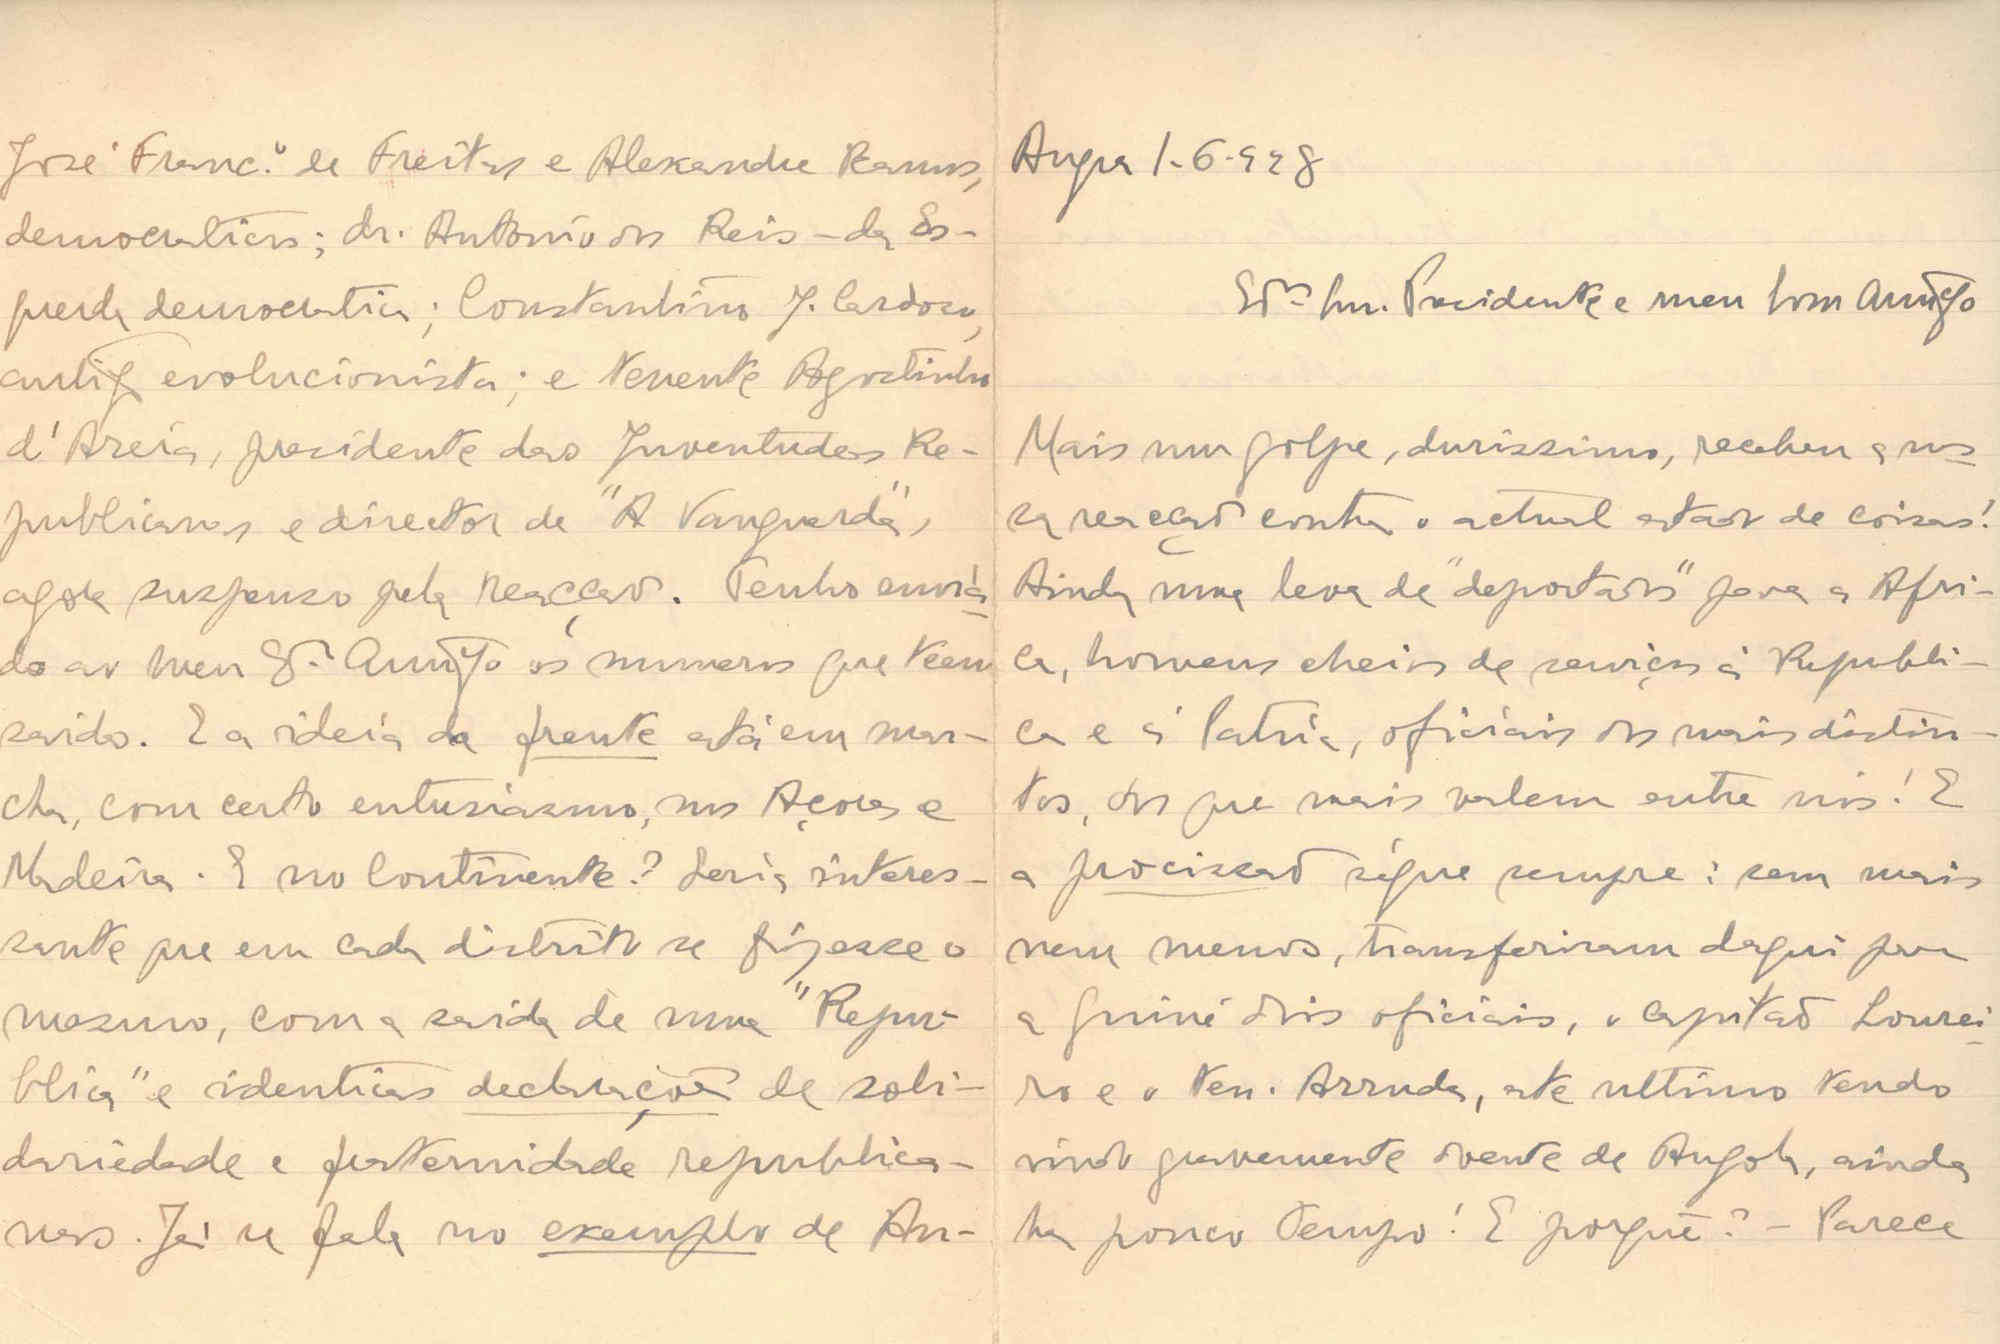 José Franc.º de Freitas e Alexandre Ramos,
democraticos; dr. Antonio dos Reis – da Es-
querda democratica; Constantino J. Cardoso,
antigo evolucionista; e tenente Agostinho
d'Areia, presidente das Juventudes Re-
publicanas e director de "A Vanguarda",
agora suspenso pela reacção. Tenho envia-
do ao meu Amigo os numeros que teem
saido. E a ideia da frente está em mar-
cha, com certo entusiasmo, nos Açores e
Madeira. E no Continente? Seria interes-
sante que em cada distrito se fizesse o
mesmo, com a saida de uma "Repu-
blica" e identicas declarações de soli-
dariedade e fraternidade republica-
nas. Já se fala no exemplo de An-
Angra 1-6-928
Snr. Presidente e meu bom Amigo
Mais um golpe, durissimo, recebeu a nos-
sa reacção contra o actual estado de coisas!
Ainda uma leva de "deportados" para a Afri-
ca, homens cheios de serviços á Republi-
ca e á Patria, oficiais dos mais distin-
tos, dos que mais valem entre nós! E
a procissão segue sempre: sem mais
nem menos, transferiram daqui para
a Guiné dois oficiais, o capitão Lourei-
ro e o ten. Arruda, este ultimo tendo
vindo gravemente doente de Angola, ainda
ha pouco tempo! E porquê? – Parece